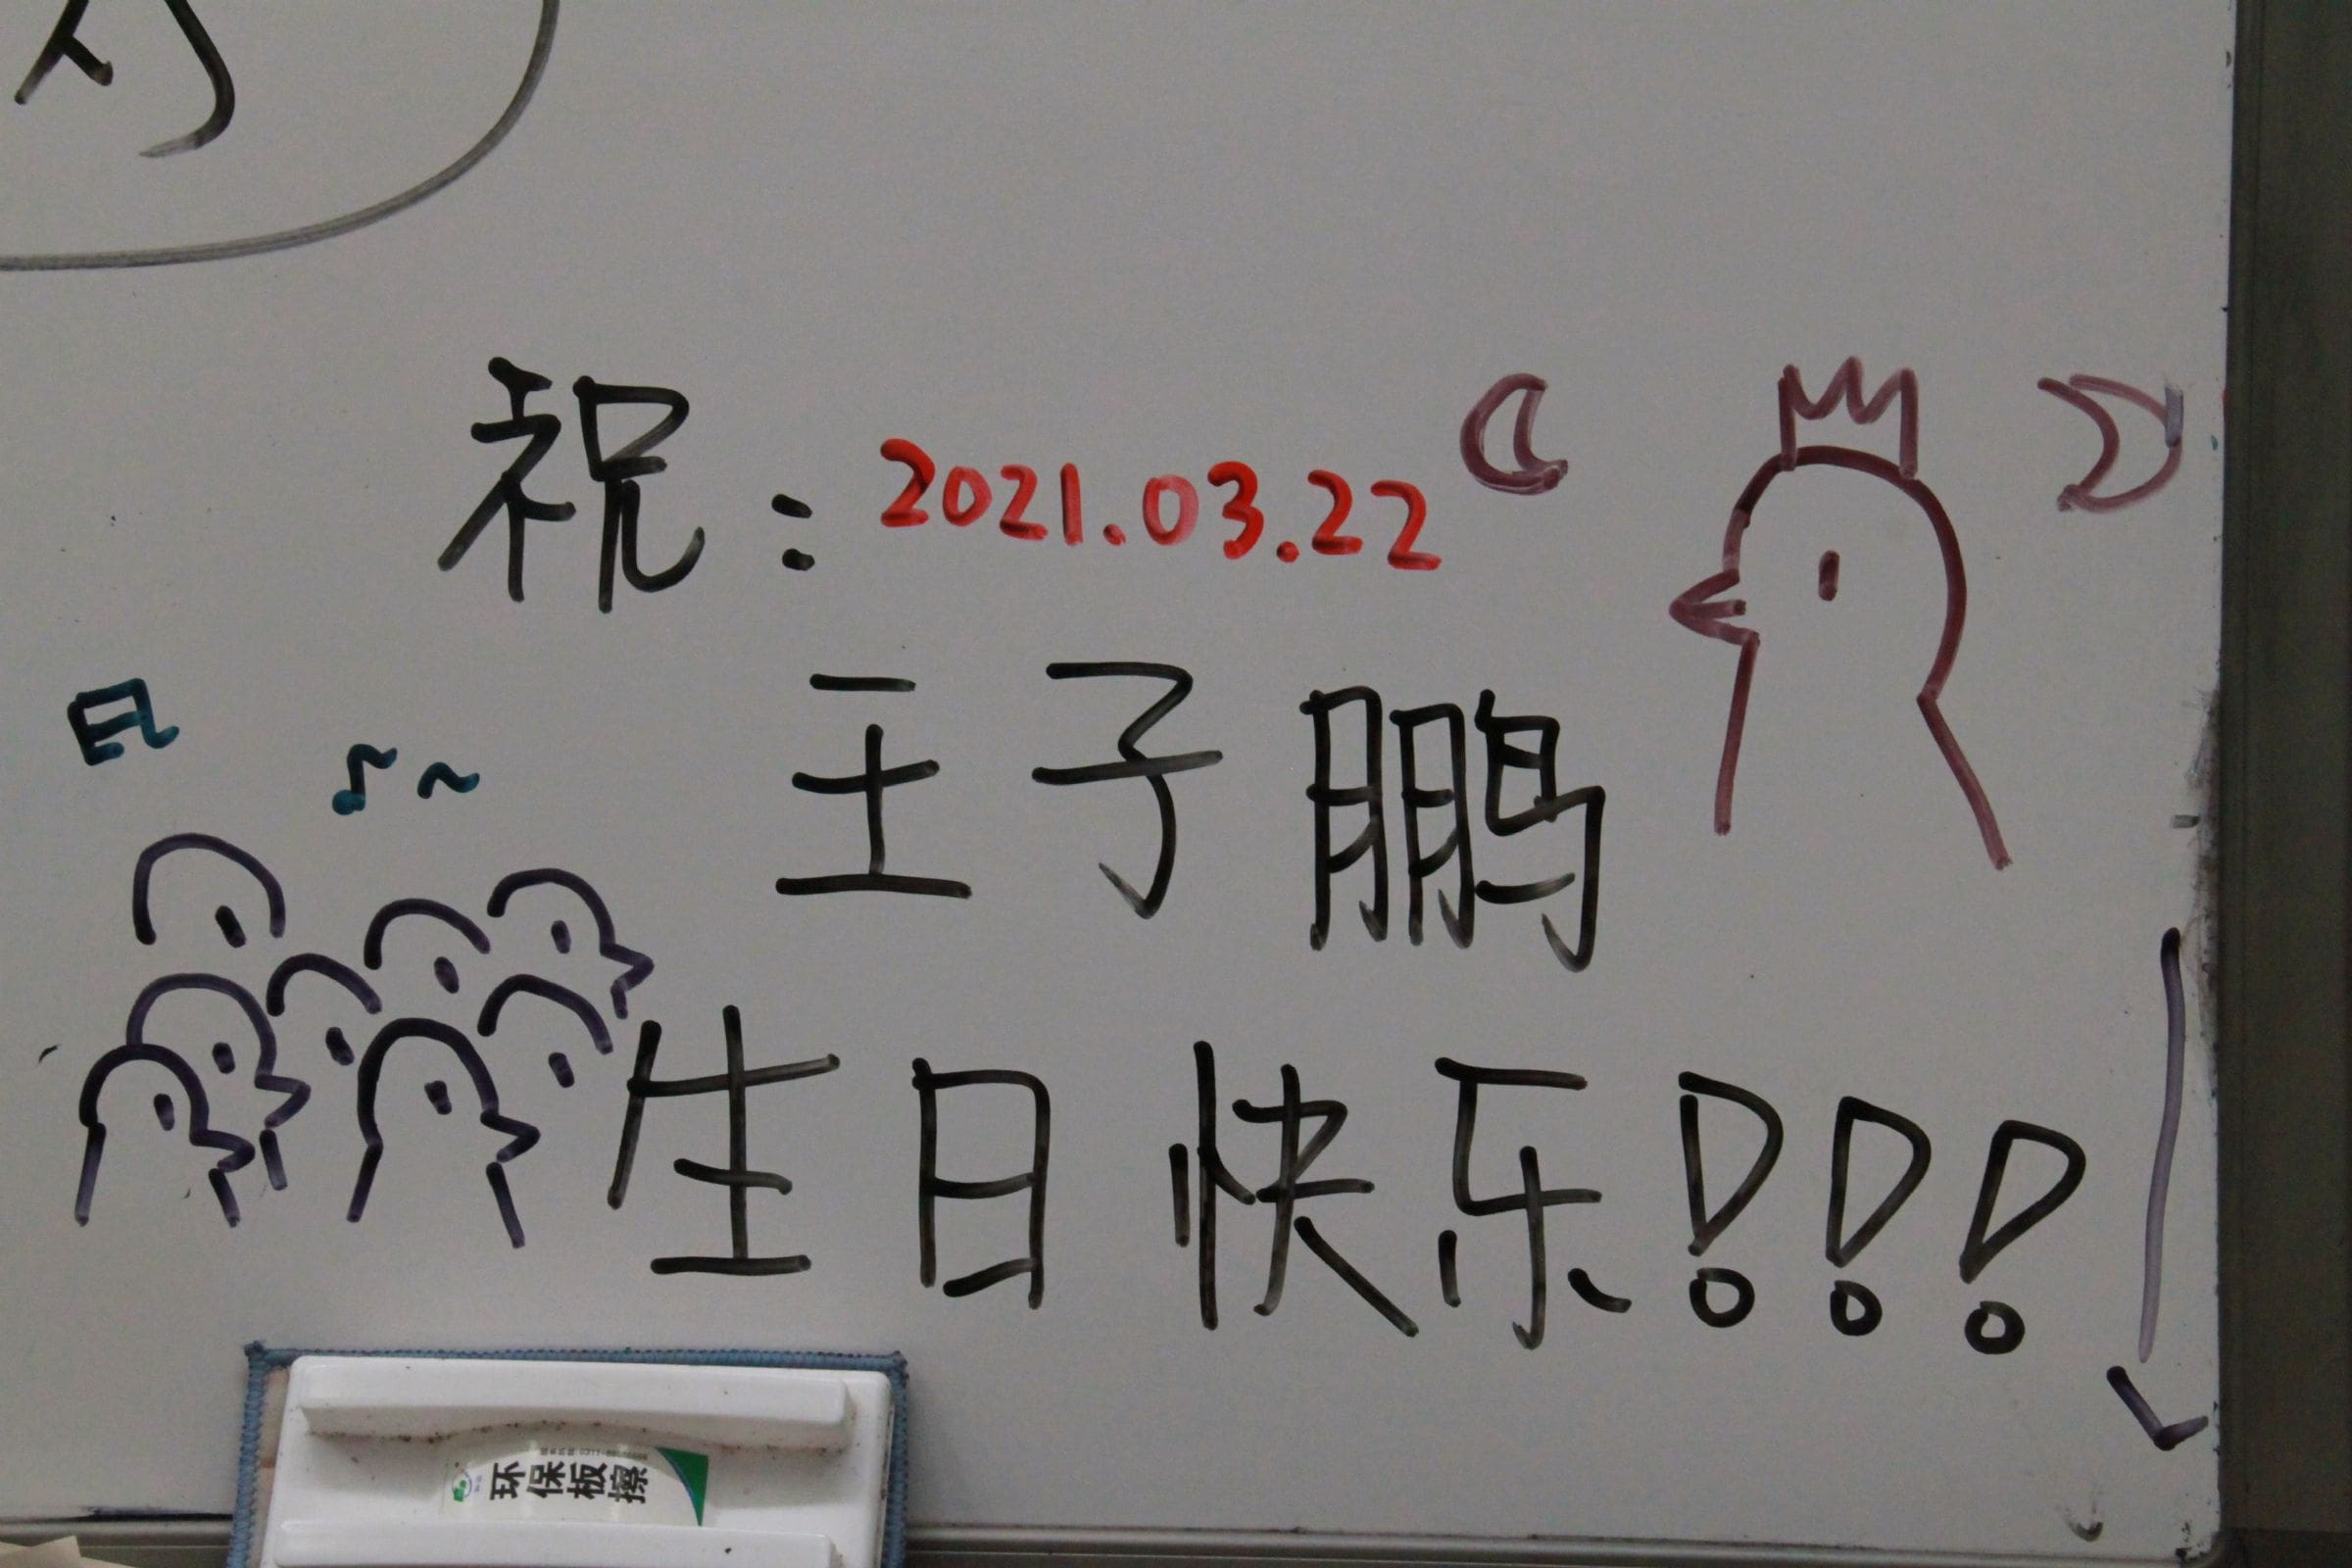 祝：2021.03.22
王子鹏
生日快乐!!!
环保板擦